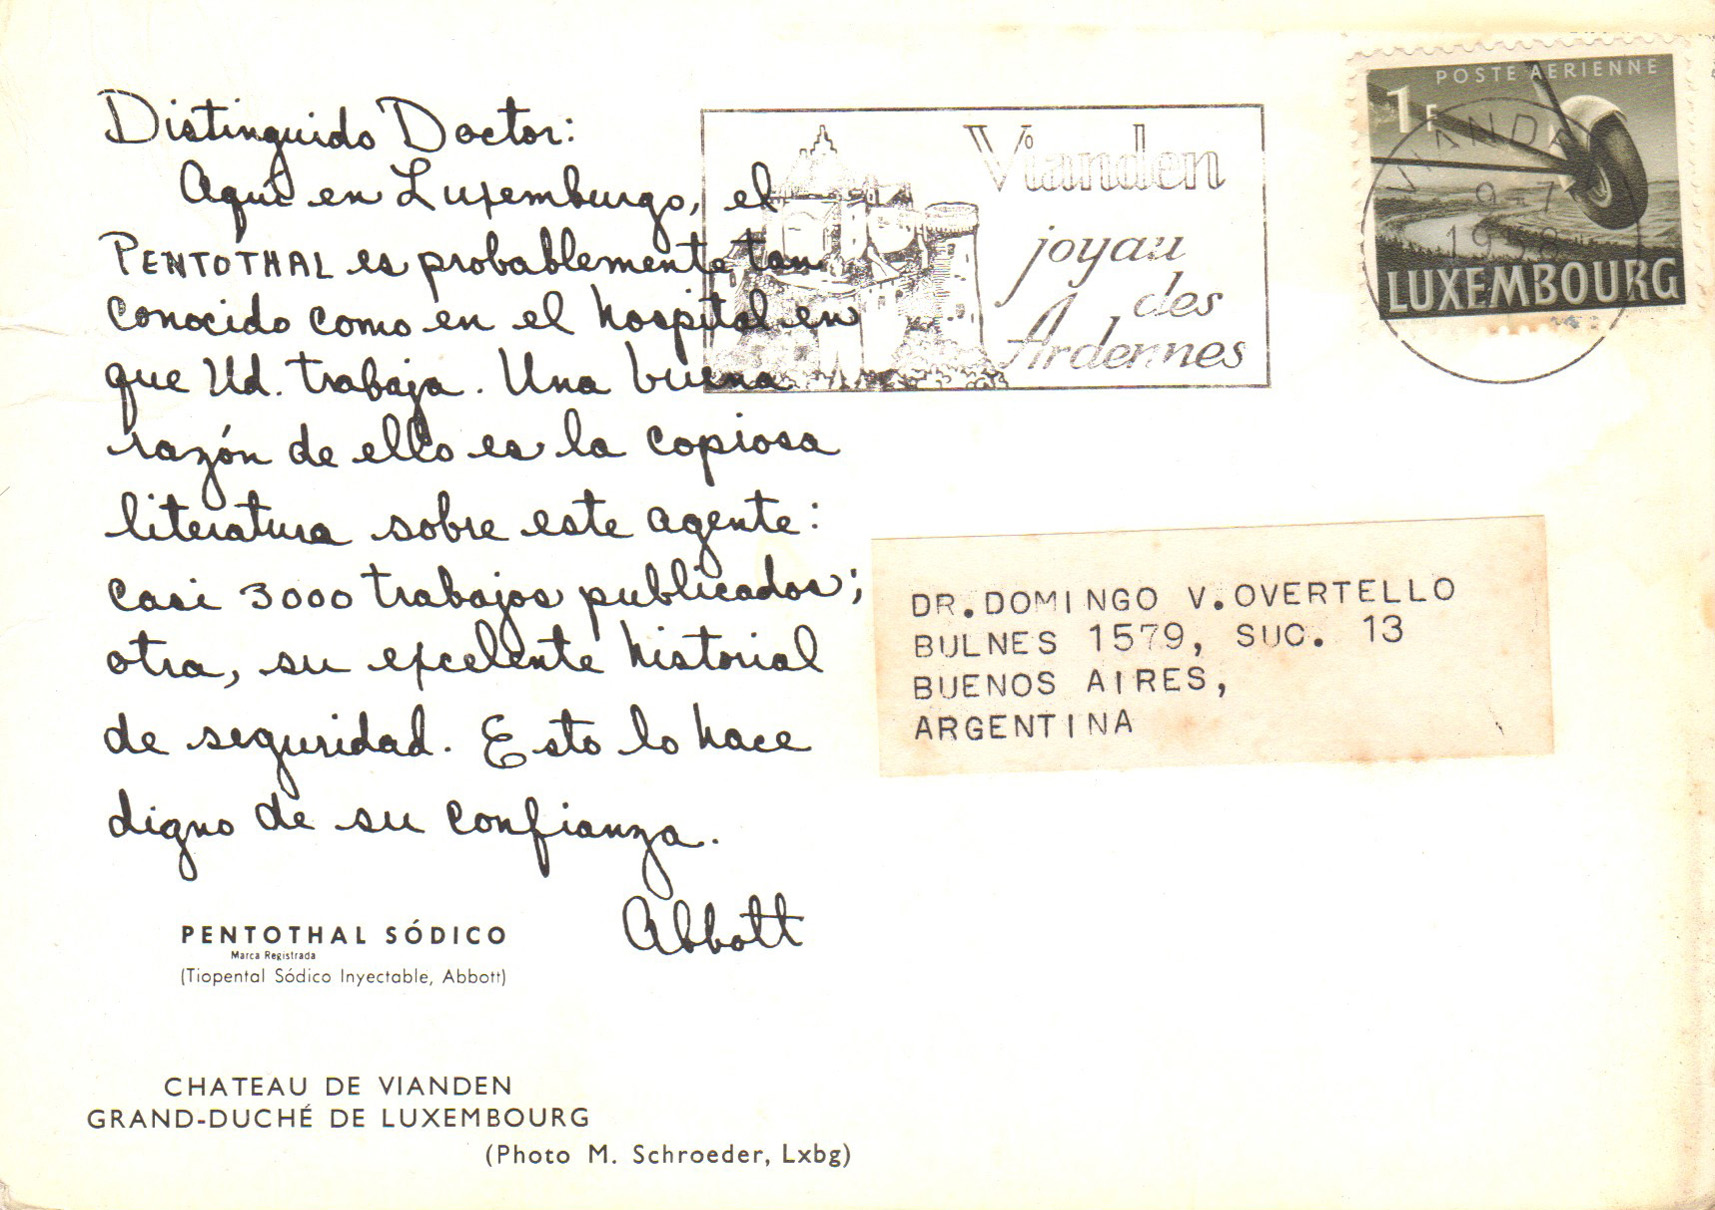 Distinguido Doctor:
Aquí en Luxemburgo, el
PENTOTHAL es probablemente tan
conocido como en el hospital en
que Ud. trabaja. Una buena
razón de ello es la copiosa
literatura sobre este agente:
casi 3000 trabajos publicados;
otra, su excelente historial
de seguridad. Esto lo hace
digno de su confianza.
Abbott
PENTOTHAL SÓDICO
Marca Registrada
(Tiopental Sódico Inyectable, Abbott)
CHATEAU DE VIANDEN
GRAND-DUCHÉ DE LUXEMBOURG
(Photo M. Schroeder, Lxbg)
Vianden
joyau
des
Ardennes
POSTE AERIENNE
1F
LUXEMBOURG
VIANDEN
1958
DR.DOMINGO V.OVERTELLO
BULNES 1579, SUC. 13
BUENOS AIRES,
ARGENTINA